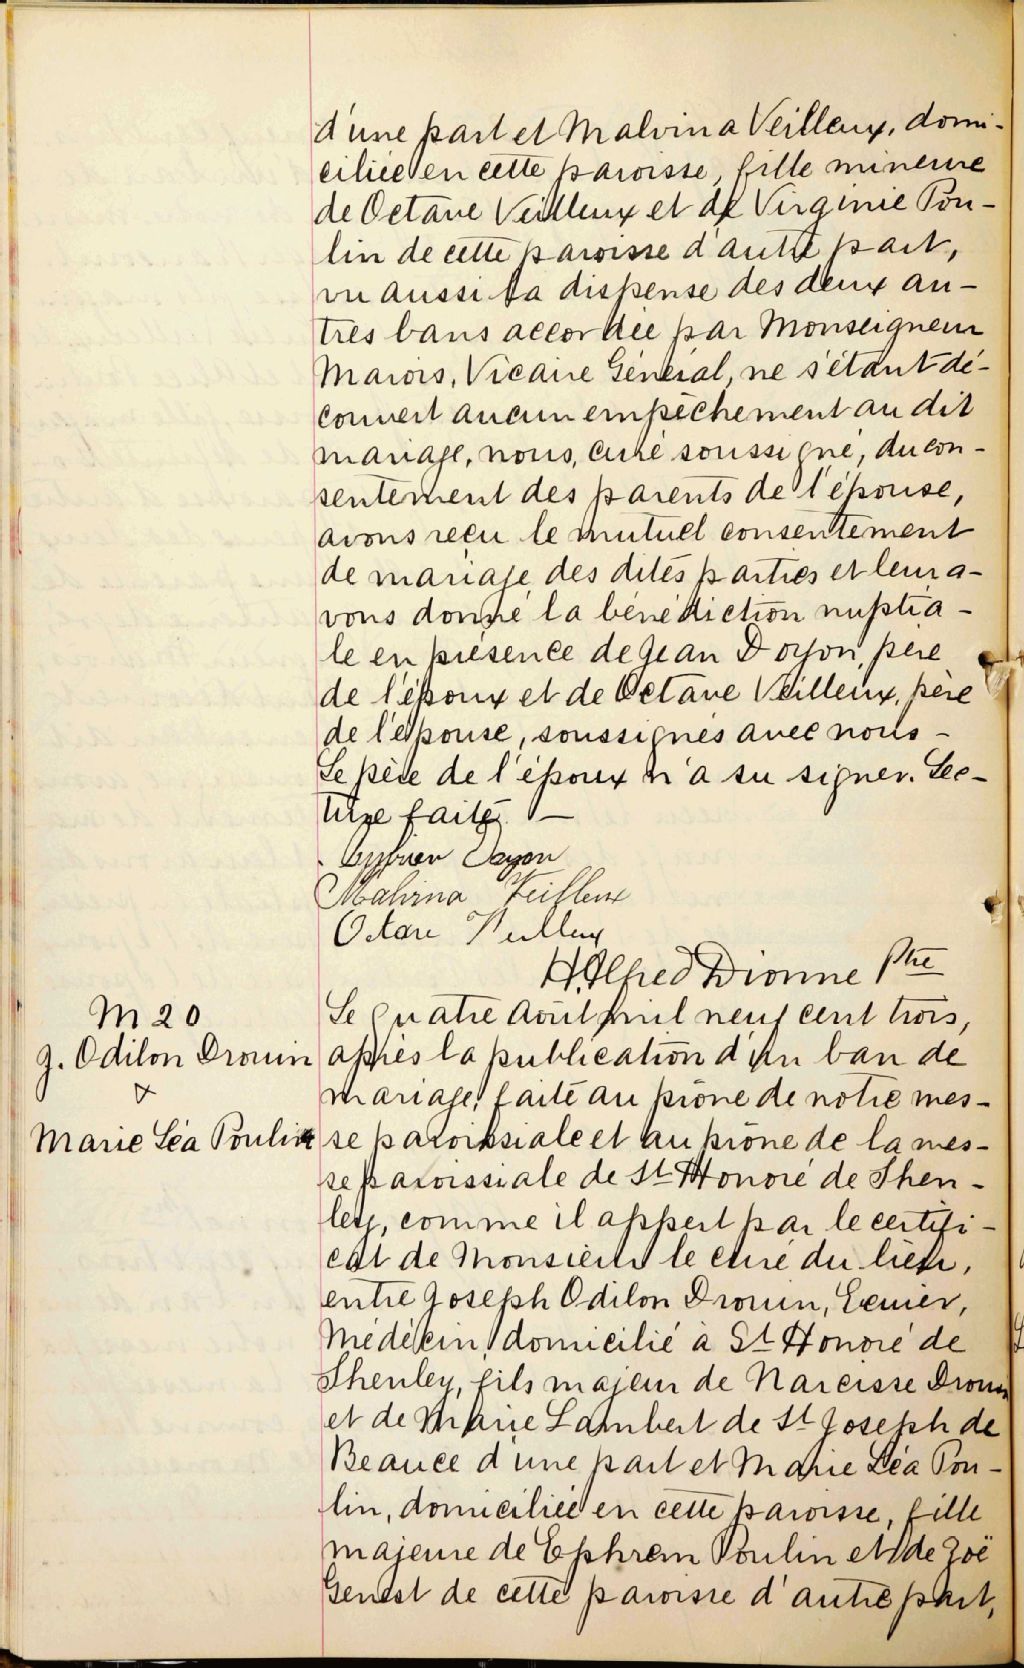 d'une part et Malvina Veilleux, domi-
ciliée en cette paroisse, fille mineure
de Octave Veilleux et de Virginie Pou-
lin de cette paroisse d'autre part,
vu aussi la dispense des deux au-
tres bans accordée par Monseigneur
Marois, Vicaire Général, ne s'étant dé-
couvert aucun empêchement au dit
mariage, nous, curé soussigné, du con-
sentement des parents de l'épouse,
avons reçu le mutuel consentement
de mariage des dites parties et leur a-
vons donné la bénédiction nuptia-
le en présence de Jean Doyon, père
de l'époux et de Octave Veilleux, père
de l'épouse, soussignés avec nous -
Le père de l'époux n'a su signer. Lec-
ture faite. —
Cyprien Doyon
Malvina Veilleux
Octave Veilleux
H. Alfred Dionne Ptre
M 20
J. Odilon Drouin
&
Marie Léa Poulin
Le quatre Août mil neuf cent trois,
après la publication d'un ban de
mariage, faite au prône de notre mes-
se paroissiale et au prône de la mes-
se paroissiale de St Honoré de Shen-
ley, comme il appert par le certifi-
cat de Monsieur le curé du lieu,
entre Joseph Odilon Drouin, Ecuier,
Médecin, domicilié à St Honoré de
Shenley, fils majeur de Narcisse Drouin
et de Marie Lambert de St Joseph de
Beauce d'une part et Marie Léa Pou-
lin, domiciliée en cette paroisse, fille
majeure de Ephrem Poulin et de Zoë
Genest de cette paroisse d'autre part,